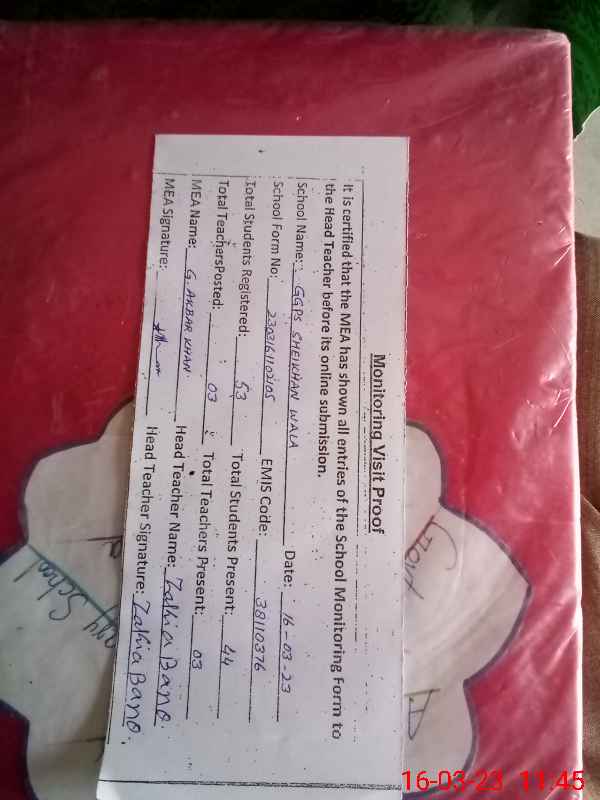 Monitoring Visit Proof
It is certified that the MEA has shown all entries of the School Monitoring Form to
the Head Teacher before its online submission.
School Name: GGPS SHEIKHAN WALA Date: 16-03-23
School Form No: 2303161102105 EMIS Code: 38110376
Total Students Registered: 53 Total Students Present: 44
Total TeachersPosted: 03 Total Teachers Present: 03
MEA Name: G. AKBAR KHAN Head Teacher Name: Zakia Bano
MEA Signature: Head Teacher Signature: Zakia Bano.
Govt
School
16-03-23 11:45